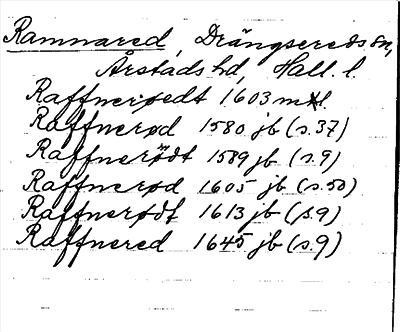 Ramnared, Drängsereds sn,
Årstads hd, Hall. l.
Raffnerøedt 1603 mtl.
Raffnerød 1580 jb (s.37)
Raffnerödt 1589 jb (s.9)
Raffnerød 1605 jb (s.50)
Raffnerødt 1613 jb (s.9)
Raffnered 1645 jb (s.9)